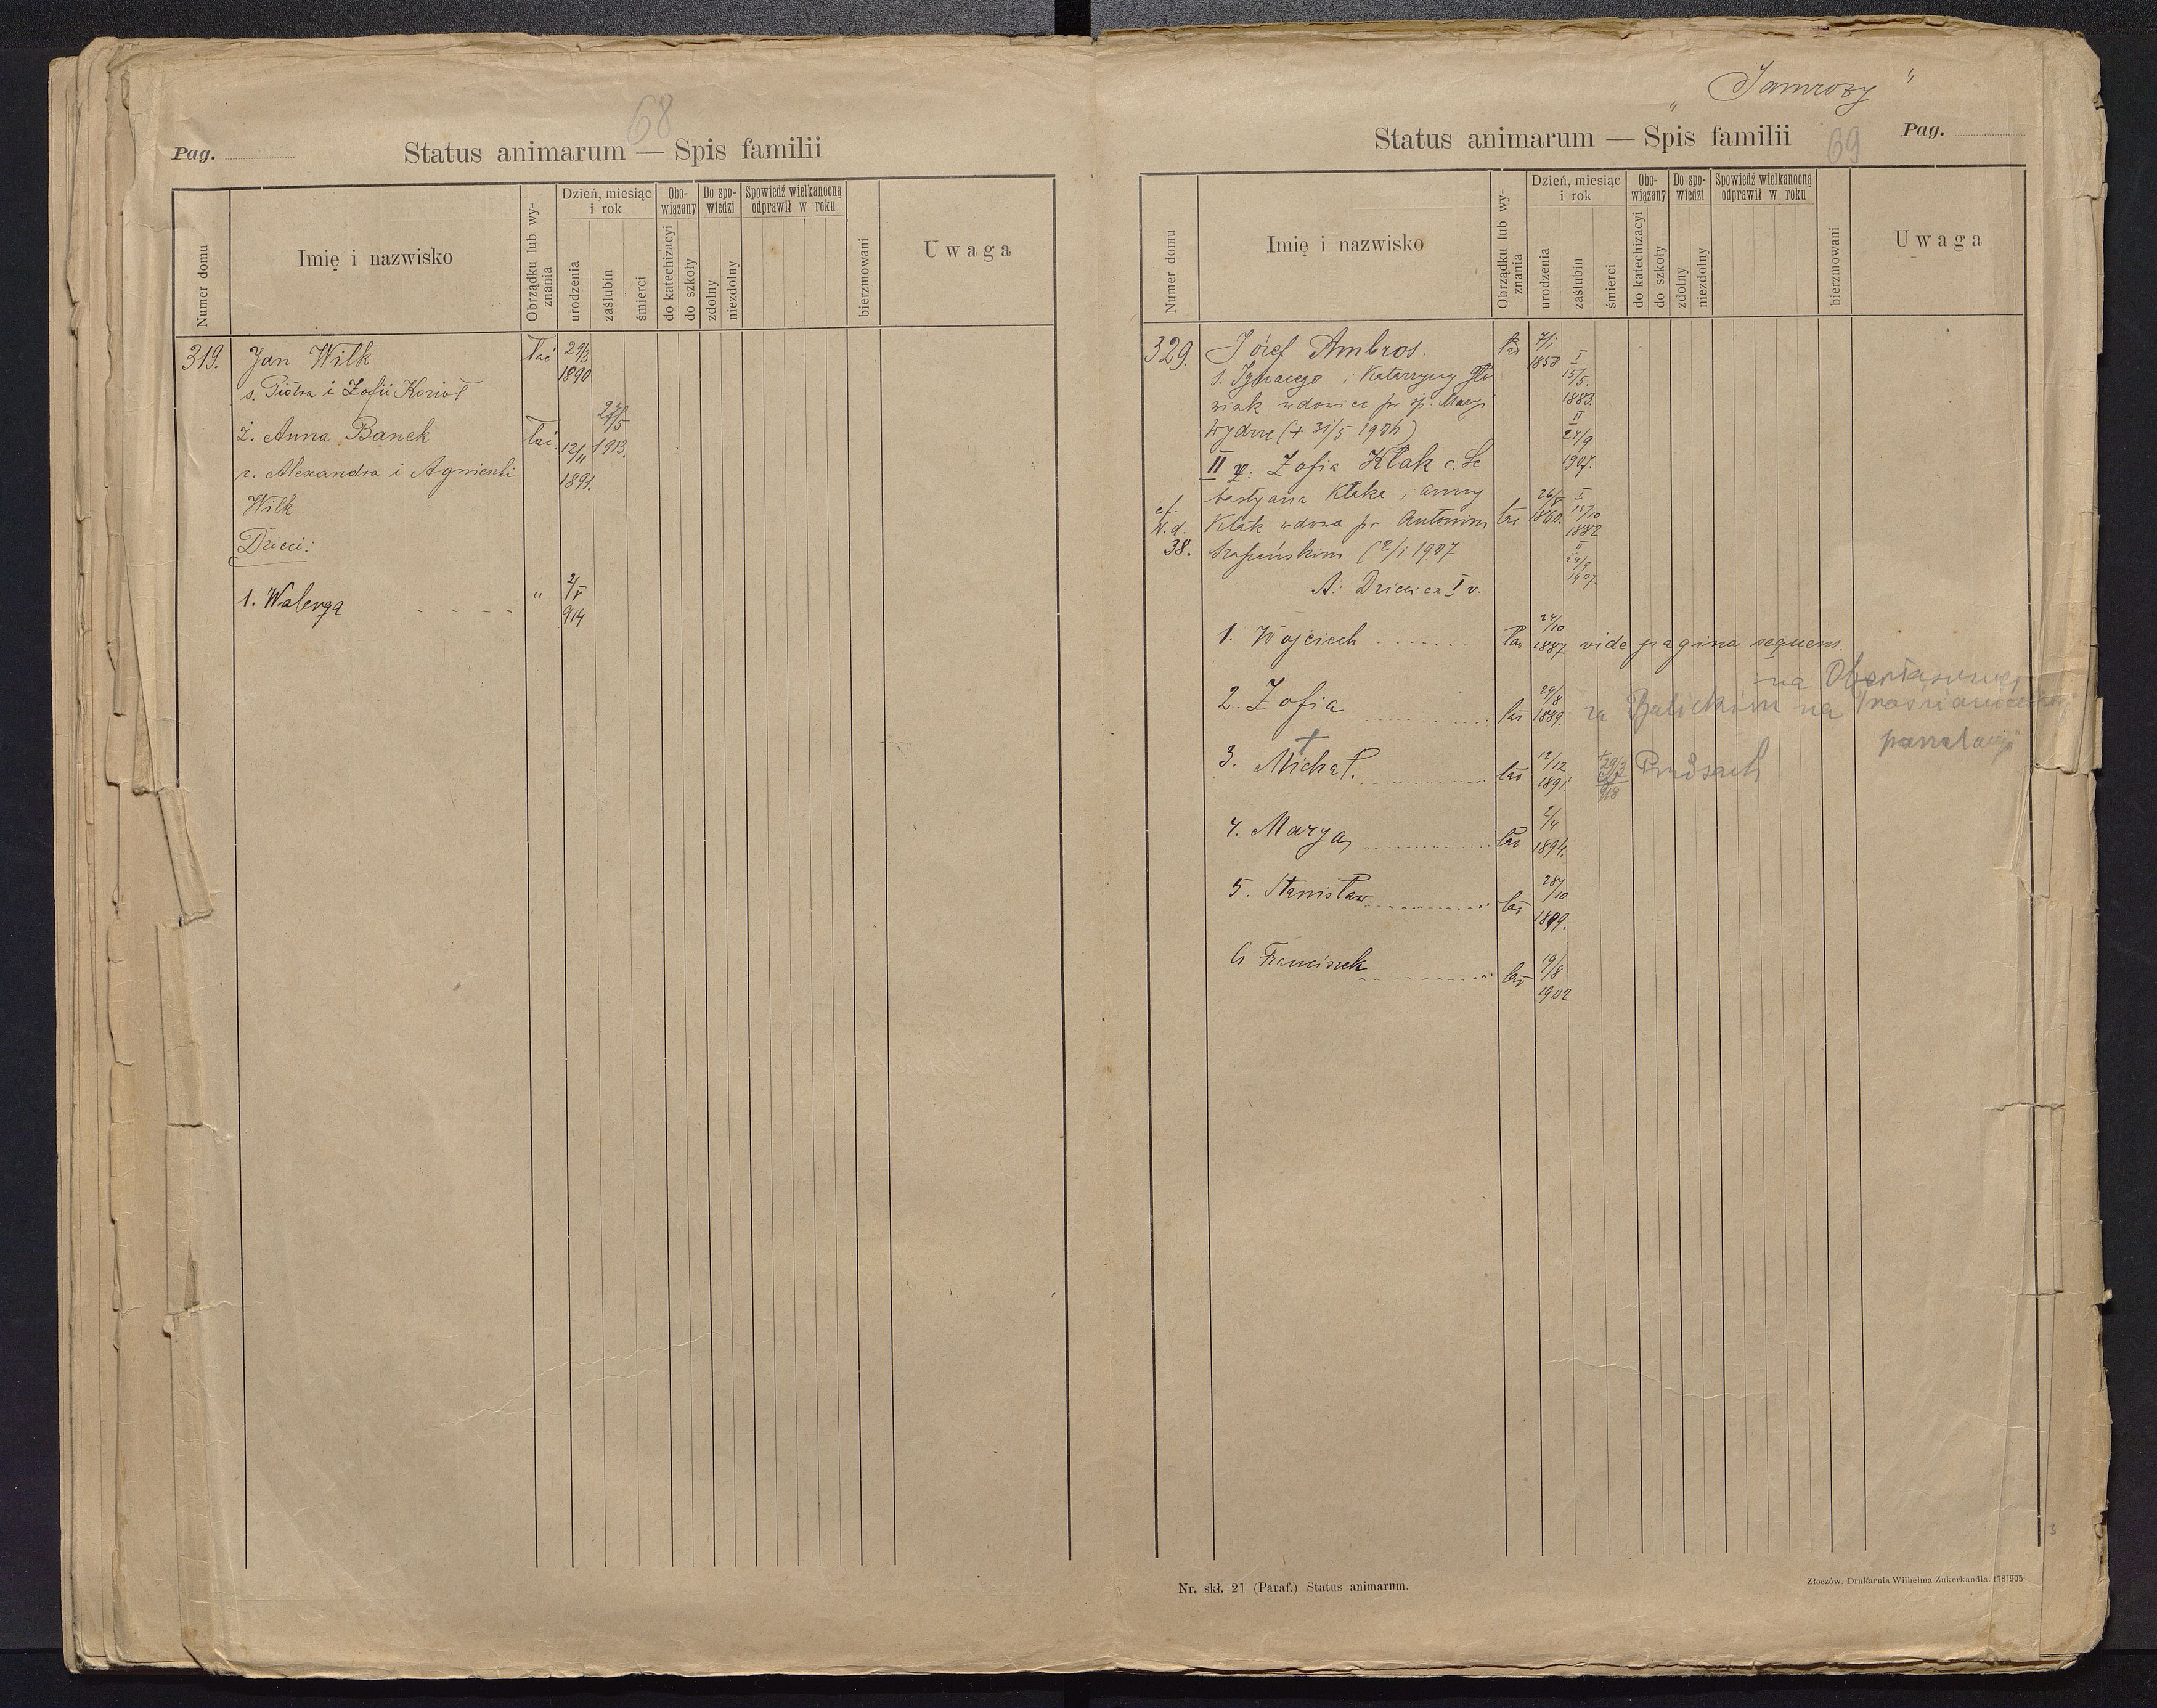 68
Pag.
Status animarum — Spis familii
Numer domu
Imię i nazwisko
Obrządku lub wyznania
Dzień, miesiąc i rok
urodzenia
zaślubin
śmierci
Obowiązany
do katechizacyi
do szkoły
Do spowiedzi
zdolny
niezdolny
Spowiedź wielkanocną odprawił w roku
bierzmowani
Uwaga
319. Jan Wilk łać 29/3 1890
s. Piotra i Zofii Kozioł
ż. Anna Banek łać. 12/11 1891. 27/5 1913.
c. Alexandra i Agnieszki
Wilk
Dzieci:
1. Walerya " 2/V 914
"Jamrozy"
Status animarum — Spis familii
69
Pag.
Numer domu
Imię i nazwisko
Obrządku lub wyznania
Dzień, miesiąc i rok
urodzenia
zaślubin
śmierci
Obowiązany
do katechizacyi
do szkoły
Do spowiedzi
zdolny
niezdolny
Spowiedź wielkanocną odprawił w roku
bierzmowani
Uwaga
329. Józef Ambros. łać 7/I 1858 I 15/5. 1883.
s. Ignacego i Katarzyny Gło
wiak wdowiec po śp. Maryi
Wydrze (+ 31/5 1906) II 24/9 1907.
II ż: Zofia Kłak c. Se
bastyana Kłaka i Anny
cf. N.d. 38. Kłak wdowa po Antonim łać 1860. I 15/10 1882
(2/I 1907 II 24/9 1907.
A: Dzieci z I v.
1. Wojciech łać 24/10 1887 vide pagina sequens.
na
2. Zofia łać 29/8 1889. za Balickim na
3. Michał. + łać 12/12 1891. + 29/3 918
4. Marya łać 2/4 1894.
5. Stanisław łać 28/10 1899.
6 Franciszek łać 19/8 1902
3
Nr. skł. 21 (Paraf.) Status animarum.
Złoczów. Drukarnia Wilhelma Zukerkandla. 278 905